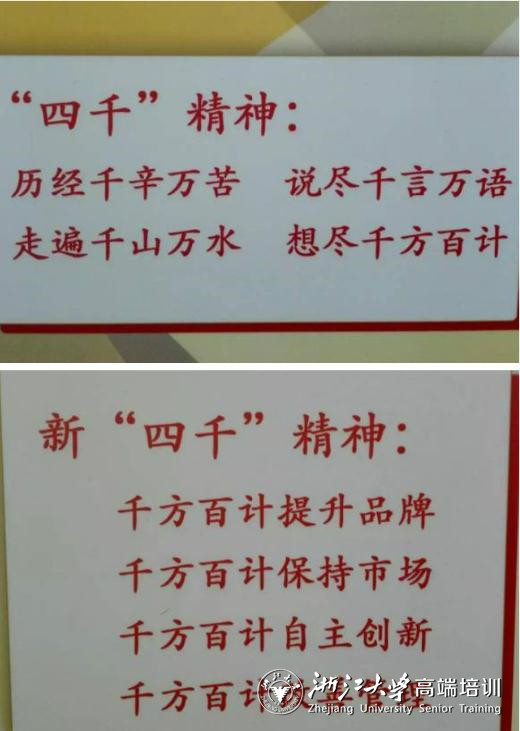 “四千”精神：
历经千辛万苦 说尽千言万语
走遍千山万水 想尽千方百计
新“四千”精神：
千方百计提升品牌
千方百计保持市场
千方百计自主创新
千方百计
浙江大学高端培训
Zhejiang University Senior Training